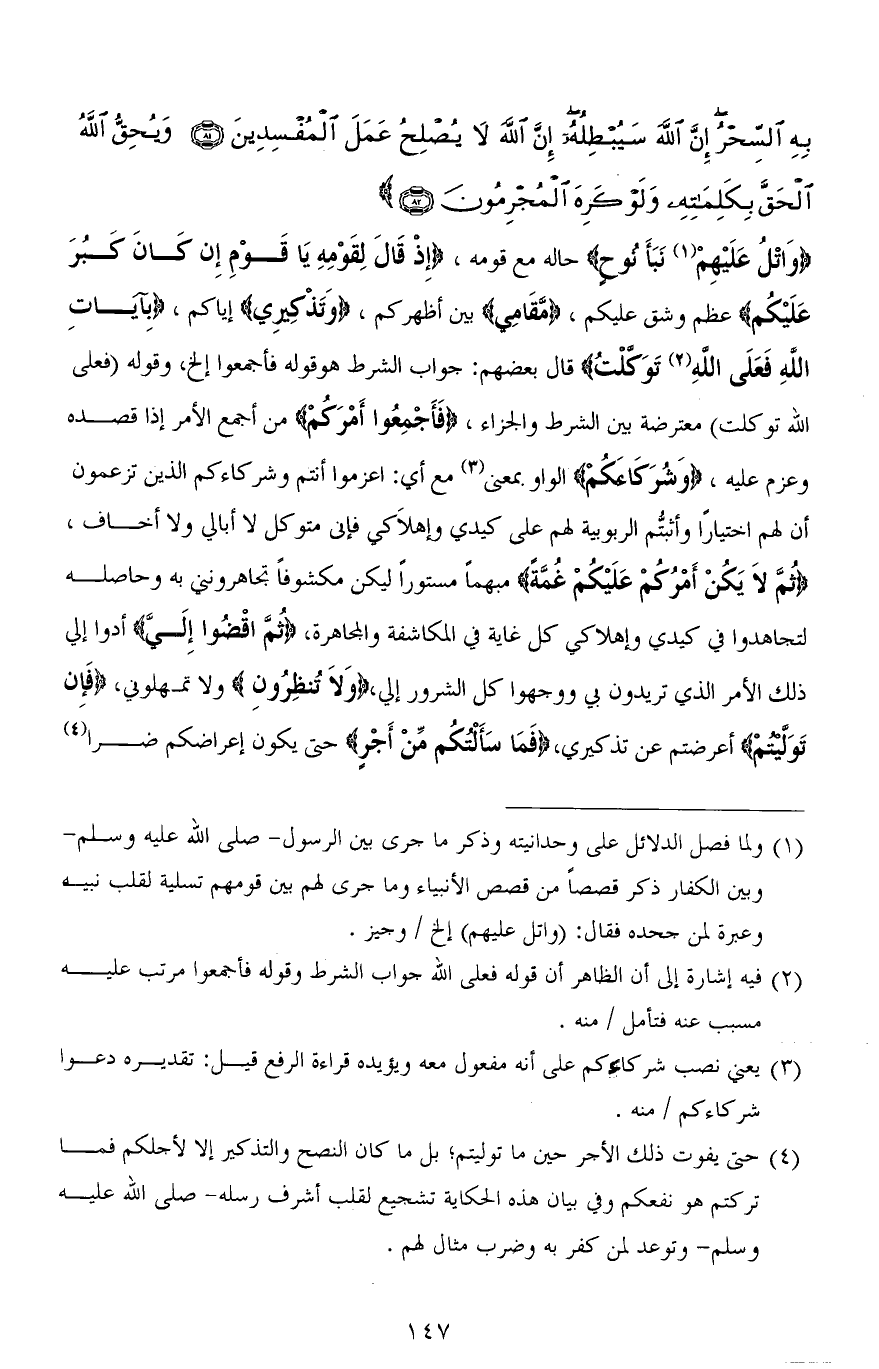 بِهِ ٱلسِّحْرُۖ إِنَّ ٱللَّهَ سَيُبْطِلُهُۥٓۖ إِنَّ ٱللَّهَ لَا يُصْلِحُ عَمَلَ ٱلْمُفْسِدِينَ ۝٨١ وَيُحِقُّ ٱللَّهُ
ٱلْحَقَّ بِكَلِمَٰتِهِۦ وَلَوْ كَرِهَ ٱلْمُجْرِمُونَ ۝٨٢﴾
﴿وَاتْلُ عَلَيْهِمْ(١) نَبَأَ نُوحٍ﴾ حاله مع قومه ، ﴿إِذْ قَالَ لِقَوْمِهِ يَا قَوْمِ إِن كَانَ كَبُرَ
عَلَيْكُم﴾ عظم وشق عليكم ، ﴿مَّقَامِي﴾ بين أظهركم ، ﴿وَتَذْكِيرِي﴾ إياكم ، ﴿بِآيَاتِ
اللَّهِ فَعَلَى اللَّهِ(٢) تَوَكَّلْتُ﴾ قال بعضهم: جواب الشرط هوقوله فأجمعوا إلخ، وقوله (فعلى
الله توكلت) معترضة بين الشرط والجزاء ، ﴿فَأَجْمِعُوا أَمْرَكُمْ﴾ من أجمع الأمر إذا قصده
وعزم عليه ، ﴿وَشُرَكَاءَكُمْ﴾ الواو بمعنى(٣) مع أي: اعزموا أنتم وشركاءكم الذين تزعمون
أن لهم اختيارًا وأثبتُّم الربوبية لهم على كيدي وإهلاَكي فإنى متوكل لا أبالي ولا أخاف ،
﴿ثُمَّ لاَ يَكُنْ أَمْرُكُمْ عَلَيْكُمْ غُمَّةً﴾ مبهماً مستوراً ليكن مكشوفاً تجاهرونني به وحاصله
لتجاهدوا في كيدي وإهلاكي كل غاية في المكاشفة والمجاهرة، ﴿ثُمَّ اقْضُوا إِلَيَّ﴾ أدوا إلي
ذلك الأمر الذي تريدون بي ووجهوا كل الشرور إلي،﴿وَلاَ تُنظِرُونِ ﴾ ولا تمهلوني، ﴿فَإِن
تَوَلَّيْتُمْ﴾ أعرضتم عن تذكيري،﴿فَمَا سَأَلْتُكُم مِّنْ أَجْرٍ﴾ حتى يكون إعراضكم ضرا(٤)
(١) ولما فصل الدلائل على وحدانيته وذكر ما جرى بين الرسول- صلى الله عليه وسلم-
وبين الكفار ذكر قصصاً من قصص الأنبياء وما جرى لهم بين قومهم تسلية لقلب نبيه
وعبرة لمن جحده فقال: (واتل عليهم) إلخ / وجيز .
(٢) فيه إشارة إلى أن الظاهر أن قوله فعلى الله جواب الشرط وقوله فأجمعوا مرتب عليه
مسبب عنه فتأمل / منه .
(٣) يعني نصب شركاءكم على أنه مفعول معه ويؤيده قراءة الرفع قيل: تقديره دعوا
شركاءكم / منه .
(٤) حتى يفوت ذلك الأجر حين ما توليتم؛ بل ما كان النصح والتذكير إلا لأجلكم فما
تركتم هو نفعكم وفي بيان هذه الحكاية تشجيع لقلب أشرف رسله- صلى الله عليه
وسلم- وتوعد لمن كفر به وضرب مثال لهم .
١٤٧